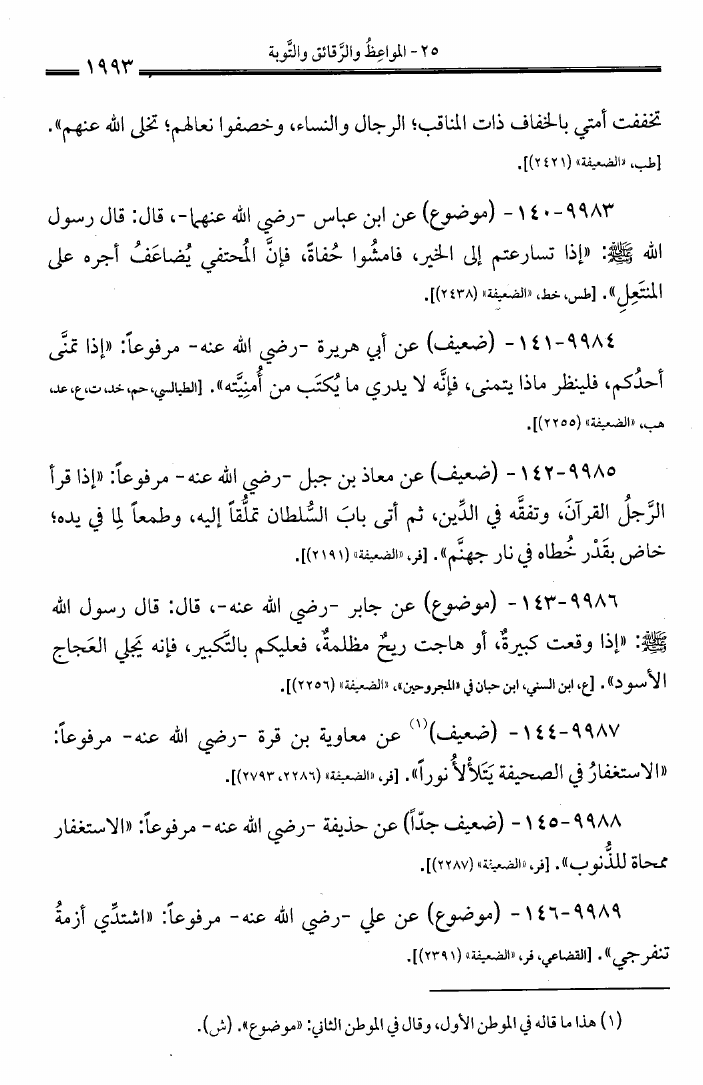 ٢٥- المواعِظُ والرَّقائق والتَّوبة
١٩٩٣
تخففت أمتي بالخفاف ذات المناقب؛ الرجال والنساء، وخصفوا نعالهم؛ تخلى الله عنهم».
[طب، «الضعيفة» (٢٤٢١)].
٩٩٨٣-١٤٠- (موضوع) عن ابن عباس -رضي الله عنهما-، قال: قال رسول
الله ﷺ: «إذا تسارعتم إلى الخير، فامشُوا حُفاةً، فإنَّ المُحتفي يُضاعَفُ أجره على
المنتَعِلِ». [طس، خط، «الضعيفة» (٢٤٣٨)].
٩٩٨٤-١٤١- (ضعيف) عن أبي هريرة -رضي الله عنه- مرفوعاً: «إذا تمنَّى
أحدُكم، فلينظر ماذا يتمنى، فإنَّه لا يدري ما يُكتَب من أُمنِيَّته». [الطيالسي، حم، خد، ت، ع، عد،
هب، «الضعيفة» (٢٢٥٥)].
٩٩٨٥-١٤٢- (ضعيف) عن معاذ بن جبل -رضي الله عنه- مرفوعاً: «إذا قرأ
الرَّجلُ القرآنَ، وتفقَّه في الدِّين، ثم أتى بابَ السُّلطان تملُّقاً إليه، وطمعاً لِما في يده؛
خاض بقَدْر خُطاه في نار جهنَّم». [فر، «الضعيفة» (٢١٩١)].
٩٩٨٦-١٤٣- (موضوع) عن جابر -رضي الله عنه-، قال: قال رسول الله
ﷺ: «إذا وقعت كبيرةٌ، أو هاجت ريحٌ مظلمةٌ، فعليكم بالتَّكبير، فإنه يجلي العَجاج
الأسود». [ع، ابن السني، ابن حبان في «المجروحين»، «الضعيفة» (٢٢٥٦)].
٩٩٨٧-١٤٤- (ضعيف)(١) عن معاوية بن قرة -رضي الله عنه- مرفوعاً:
«الاستغفارُ في الصحيفة يَتَلألأُ نوراً». [فر، «الضعيفة» (٢٢٨٦، ٢٧٩٣)].
٩٩٨٨-١٤٥- (ضعيف جدّاً) عن حذيفة -رضي الله عنه- مرفوعاً: «الاستغفار
ممحاة للذُّنوب». [فر، «الضعيفة» (٢٢٨٧)].
٩٩٨٩-١٤٦- (موضوع) عن علي -رضي الله عنه- مرفوعاً: «اشتدِّي أزمةُ
تنفرجي». [القضاعي، فر، «الضعيفة» (٢٣٩١)].
(١) هذا ما قاله في الموطن الأول، وقال في الموطن الثاني: «موضوع». (ش).